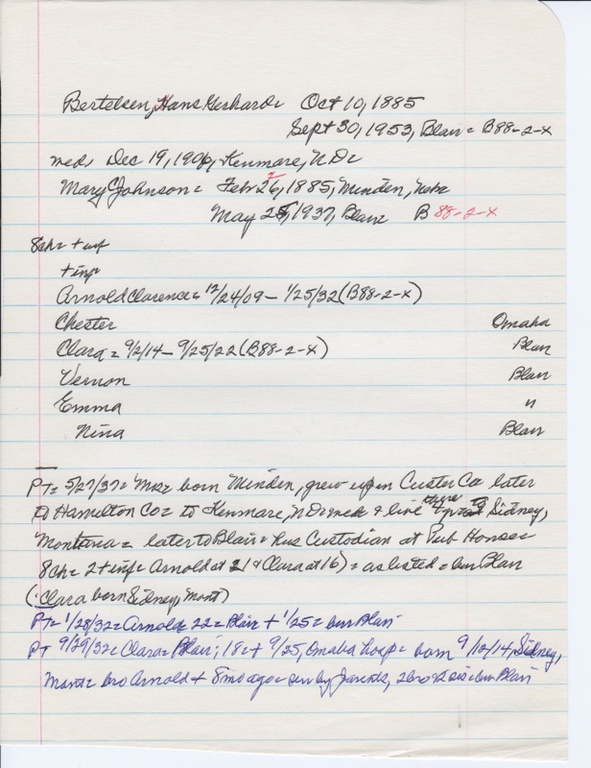 Bertelsen, Hans Gerhard = Oct 10, 1885
Sept 30, 1953, Blair = B88-2-x
med, Dec 19, 1906, Kenmare, N D =
Mary Johnson = Feb 26, 1885, Minden, Nebr
2
May 25, 1937, Blair B 88-2-x
8ch = + inf
+ inf
Arnold Clarence = 12/24/09 - 1/25/32 (B88-2-x)
Chester Omaha
Clara = 9/2/14 - 9/25/22 (B88-2-x) Blair
Vernon Blair
Emma "
Nina Blair
PT = 5/27/37 = Mrs = born Minden, grew up in Custer Co later
to Hamilton Co = to Kenmare, N D & live there + to Sidney,
Montana = later to Blair = hus Custodian at Pub House =
8ch = 2 + inf = Arnold at 21 & Clara at 16) = as listed = bur Blair
(Clara born Sidney, Mont)
PT = 1/28/32 = Arnold = 22 = Blair + 1/25 = bur Blair
PT 9/29/32 = Clara = Blair; 18 = + 9/25, Omaha hosp = born 9/12/14, Sidney,
Mont = bro Arnold + 8 mo ago = sur by parents, 2 bro & 2 sis = bur Blair